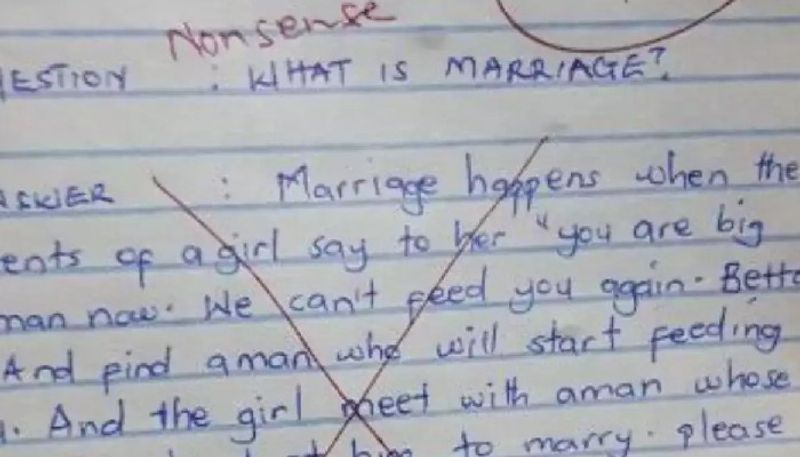 Nonsense
ESTION : WHAT IS MARRIAGE?
: Marriage happens when the
ents of a girl say to her "you are big
man now. We can't feed you again. Bette
And find a man who will start feeding
. And the girl meet with aman whose
him to marry. please